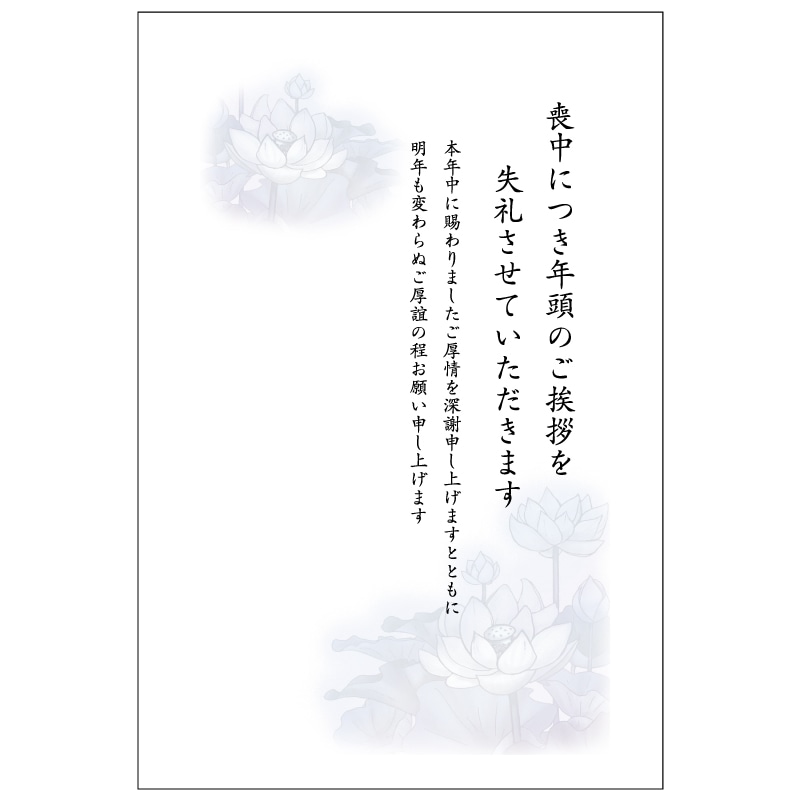 喪中につき年頭のご挨拶を
失礼させていただきます
本年中に賜わりましたご厚情を深謝申し上げますとともに
明年も変わらぬご厚誼の程お願い申し上げます